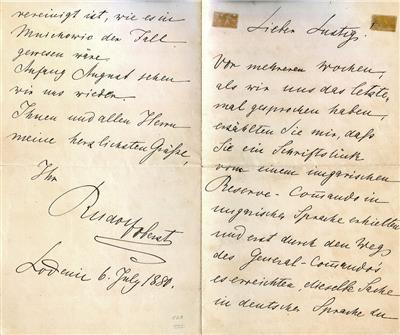 Lieber Lustig!
Vor mehreren Wochen,
als wir uns das letzte-
mal gesprochen haben,
erzählten Sie mir, daß
Sie ein Schriftstück
von einem ungarischen
Reserve-Comando in
ungarischer Sprache erhielten
und erst durch den Weg
des General-Comando's
es erreichten dieselbe Sache
in deutscher Sprache zu
vereinigt ist, wie es in
der Fall
gewesen wäre.
Anfang August sehen
wir uns wieder.
Ihnen und allen Herrn
meine herzlichsten Grüße,
Ihr
Rudolf Oberst
6. July 1880.